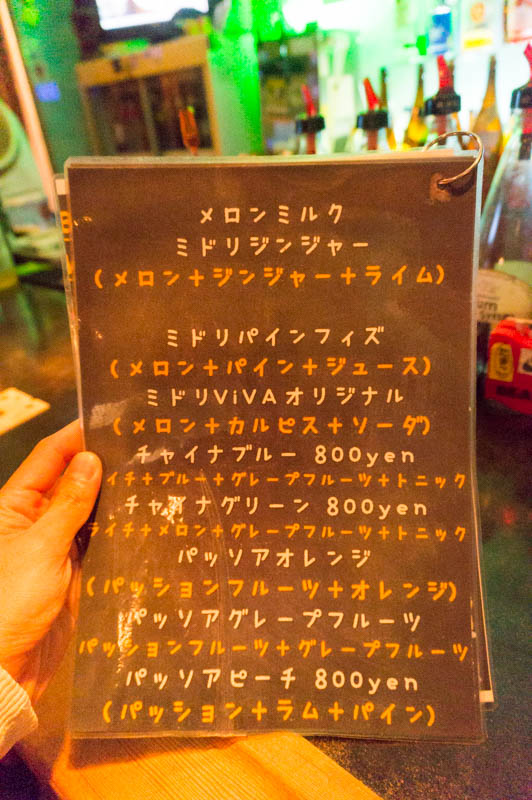 メロンミルク
ミドリジンジャー
(メロン+ジンジャー+ライム)
ミドリパインフィズ
(メロン+パイン+ジュース)
ミドリViVAオリジナル
(メロン+カルピス+ソーダ)
チャイナブルー 800yen
イチ+ブルー+グレープフルーツ+トニック
チャイナグリーン 800yen
ライチ+メロン+グレープフルーツ+トニック
パッソアオレンジ
(パッションフルーツ+オレンジ)
パッソアグレープフルーツ
パッションフルーツ+グレープフルーツ
パッソアピーチ 800yen
(パッション+ラム+パイン)